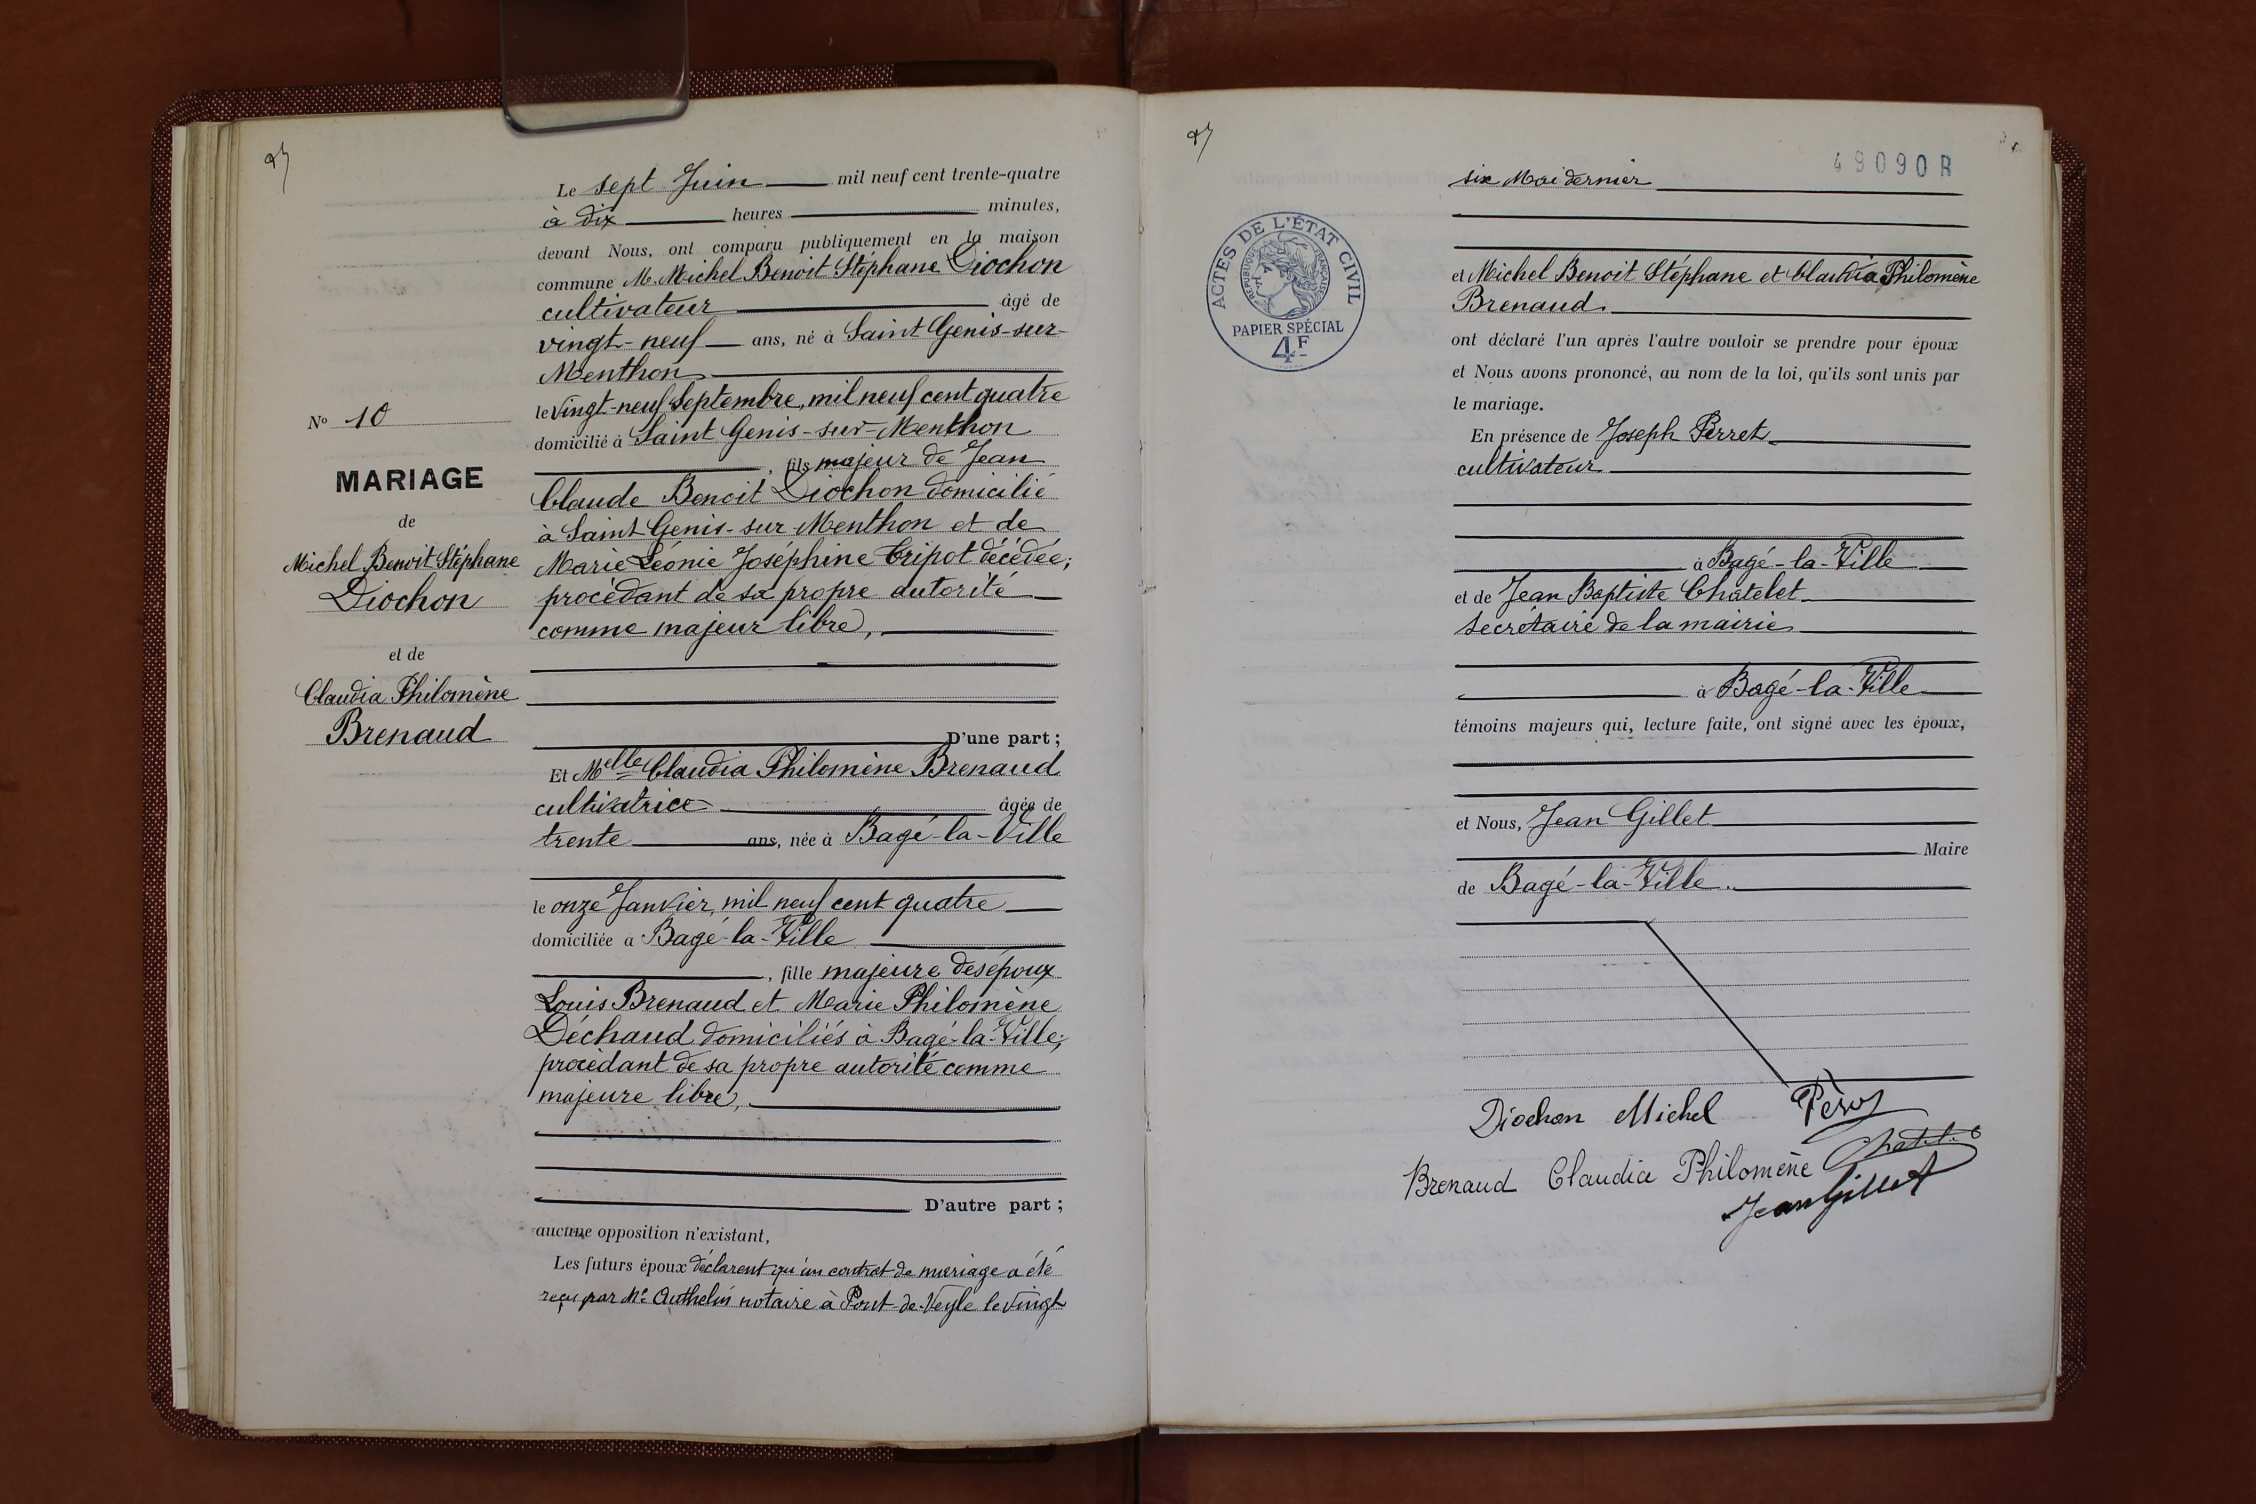 27
Le sept Juin mil neuf cent trente-quatre
à dix heures minutes,
devant Nous, ont comparu publiquement en la maison
commune M. Michel Benoit Stéphane Diochon
cultivateur âgé de
vingt-neuf ans, né à Saint Genis-sur-
Menthon
le vingt-neuf Septembre, mil neuf cent quatre
domicilié à Saint Genis-sur-Menthon
, fils majeur de Jean
Claude Benoit Diochon domicilié
à Saint Genis-sur-Menthon et de
Marie Léonie Joséphine Tripot décédée;
procédant de sa propre autorité
comme majeur libre,
D'une part;
Et Melle Claudia Philomène Brenaud
cultivatrice âgée de
trente ans, née à Bagé-la-Ville
le onze Janvier, mil neuf cent quatre
domiciliée à Bagé-la-Ville
, fille majeure des époux
Louis Brenaud et Marie Philomène
Déchaud domiciliés à Bagé-la-Ville;
procédant de sa propre autorité comme
majeure libre,
D'autre part;
aucune opposition n'existant,
Les futurs époux déclarent qu'un contrat de mariage a été
reçu par Me Authelin notaire à Pont-de-Veyle le vingt
No 10
MARIAGE
de
Michel Benoit Stéphane
Diochon
et de
Claudia Philomène
Brenaud
27
49090R
six Mai dernier
ACTES DE L'ÉTAT CIVIL
RÉPUBLIQUE FRANÇAISE
PAPIER SPÉCIAL
4F
et Michel Benoit Stéphane et Claudia Philomène
Brenaud.
ont déclaré l'un après l'autre vouloir se prendre pour époux
et Nous avons prononcé, au nom de la loi, qu'ils sont unis par
le mariage.
En présence de Joseph Perret
cultivateur
à Bagé-la-Ville
et de Jean Baptiste Châtelet
secrétaire de la mairie
à Bagé-la-Ville
témoins majeurs qui, lecture faite, ont signé avec les époux,
et Nous, Jean Gillet
Maire
de Bagé-la-Ville.
Diochon Michel
Brenaud Claudia Philomène
Jean Gillet